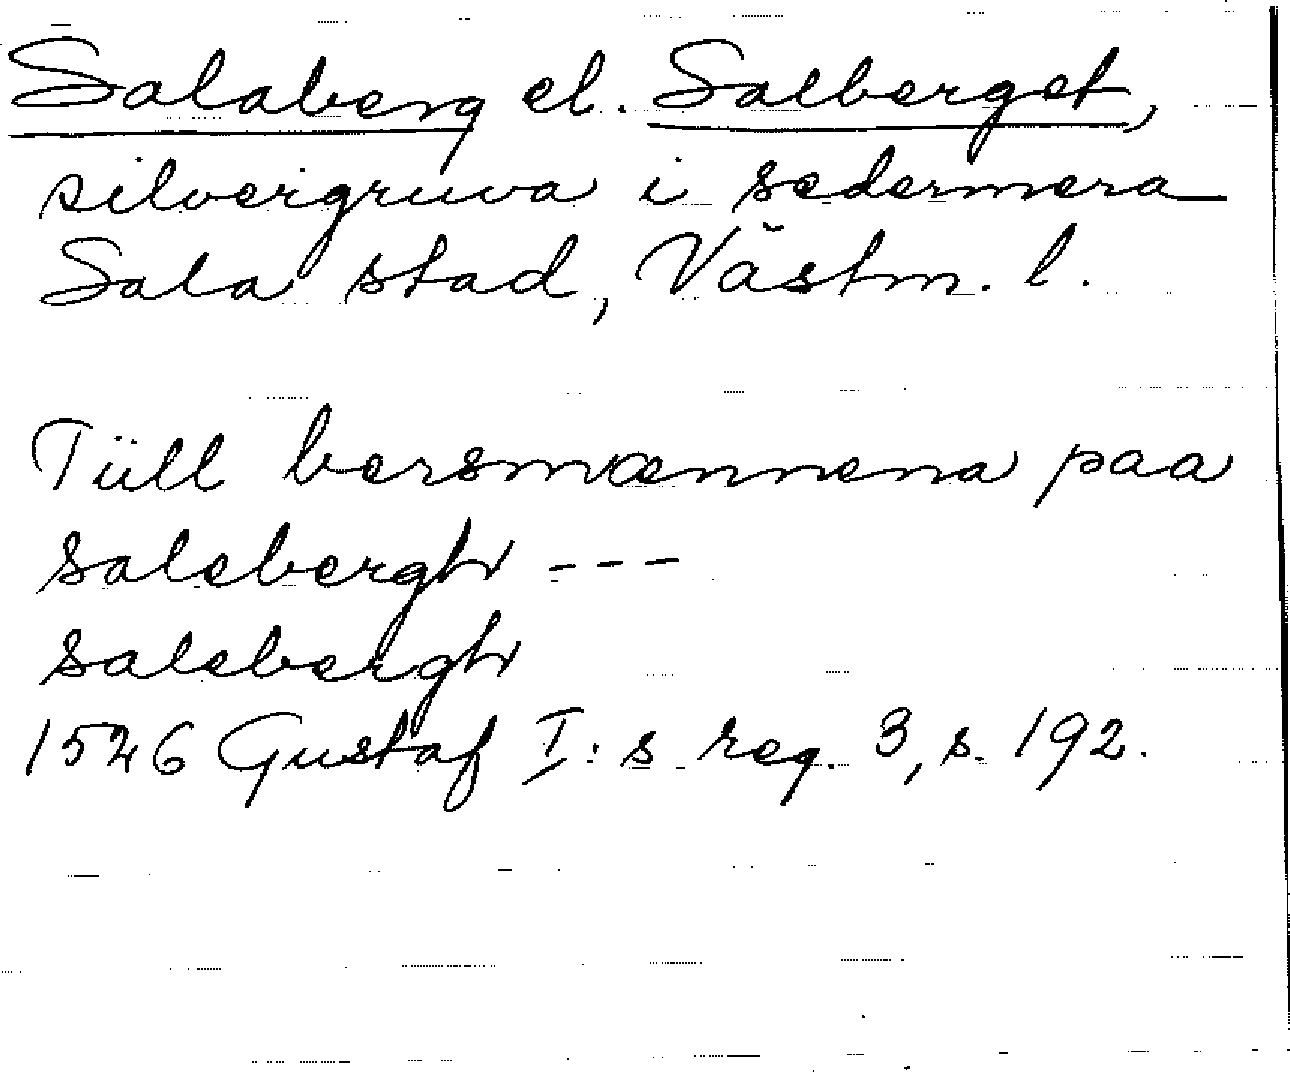 Salaberg el. Salberget,
silvergruva i sedermera
Sala stad, Västm. l.
Tüll bersmænnena paa
salebergh ---
salebergh
1526 Gustaf I:s reg. 3, s. 192.